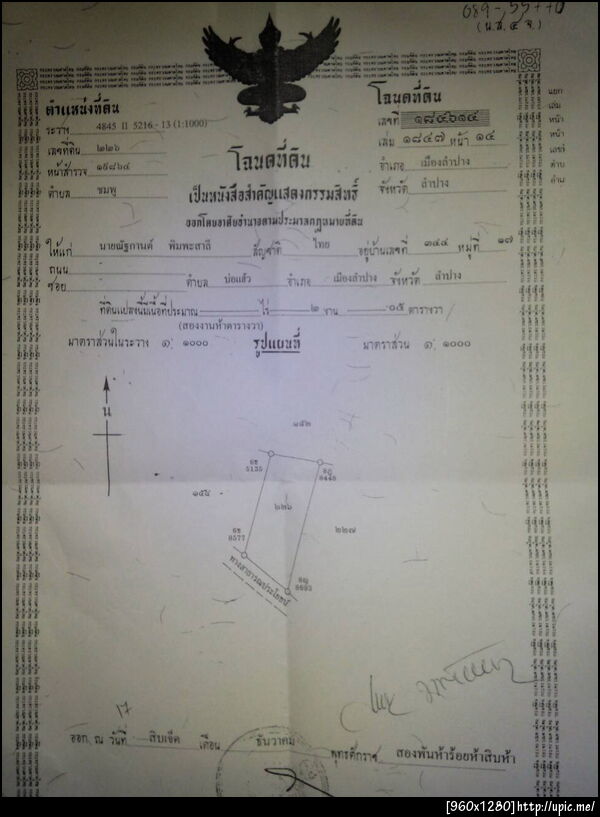 (น.ส.๔ จ.)
ตำแหน่งที่ดิน
ระวาง 4845 II 5216 - 13 (1:1000)
เลขที่ดิน ๒๒๖
หน้าสำรวจ ๑๕๘๖๔
ตำบล ชมพู
โฉนดที่ดิน
เลขที่ ๑๘๔๖๑๔
เล่ม ๑๘๔๗ หน้า ๑๔
อำเภอ เมืองลำปาง
จังหวัด ลำปาง
แยก
เล่ม
หน้า
หน้า
เลขที่
ตำบล
อำเภอ
โฉนดที่ดิน
เป็นหนังสือสำคัญแสดงกรรมสิทธิ์
ออกโดยอาศัยอำนาจตามประมวลกฎหมายที่ดิน
ให้แก่ นายณัฐกานต์ พิมพะสาลี สัญชาติ ไทย อยู่บ้านเลขที่ ๑๔๔ หมู่ที่ ๑๗
ถนน -
ซอย - ตำบล บ่อแฮ้ว อำเภอ เมืองลำปาง จังหวัด ลำปาง
ที่ดินแปลงนี้มีเนื้อที่ประมาณ - ไร่ ๒ งาน ๐๕ ตารางวา
(สองงานห้าตารางวา)
มาตราส่วนในระวาง ๑: ๑๐๐๐ รูปแผนที่ มาตราส่วน ๑: ๑๐๐๐
น
๑๕๒
6ข 5155
๑๕๔
๒๒๖
๒๒๗
6ข 8577
ทางสาธารณประโยชน์
17
ออก ณ วันที่ สิบเจ็ด เดือน ธันวาคม พุทธศักราช สองพันห้าร้อยห้าสิบห้า
[960x1280] http://upic.me/